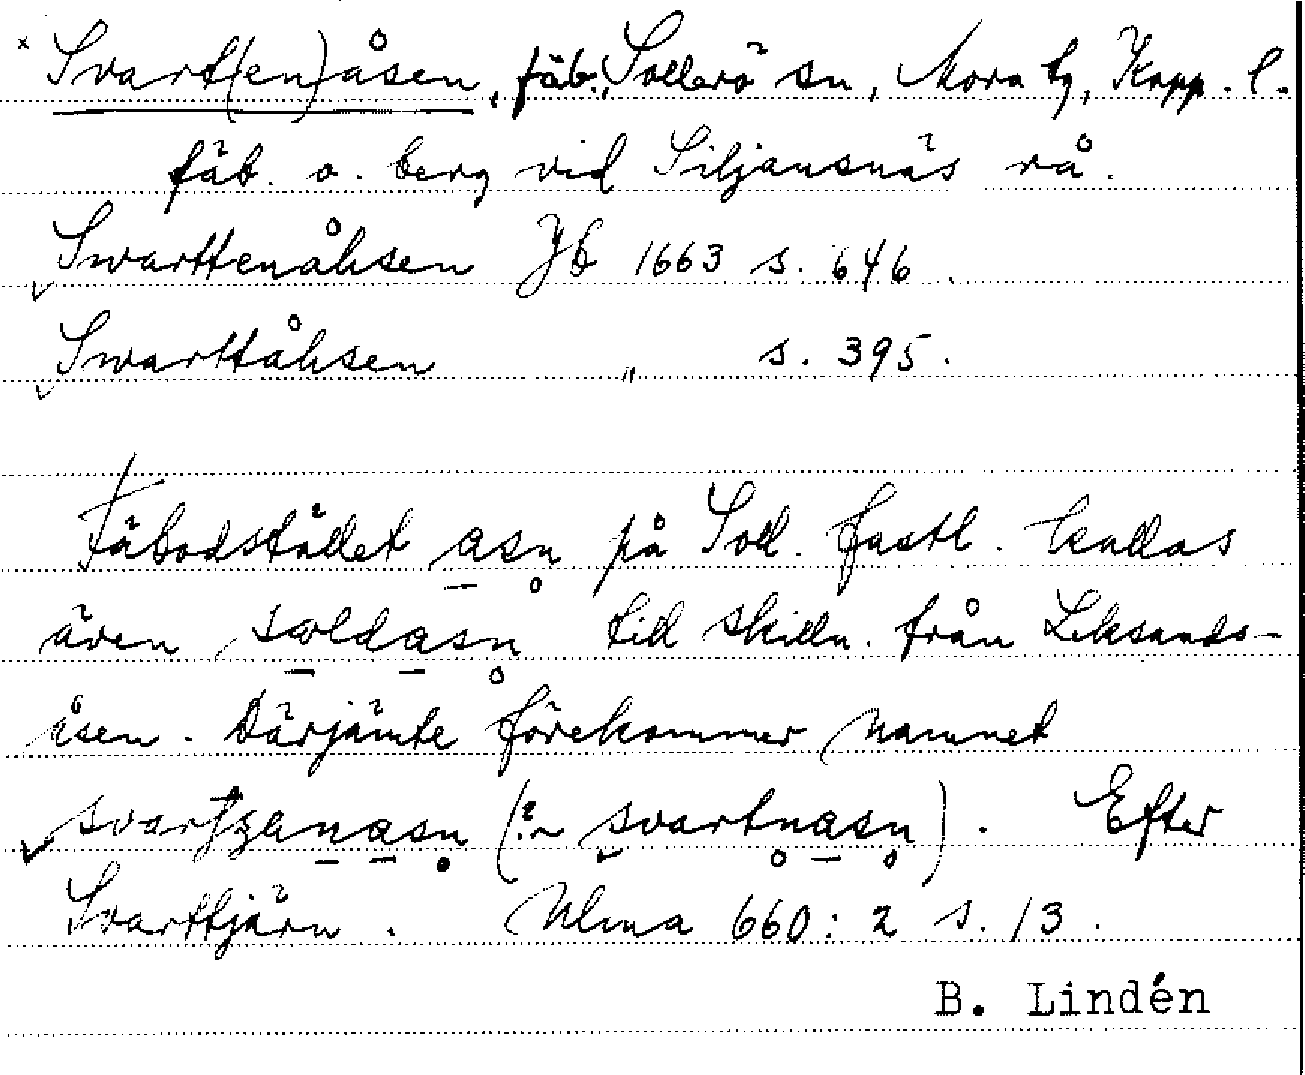 × Svart(en)åsen, fäb., Sollerö sn, Mora tg, Kopp. l.
fäb. o. berg vid Siljansnäs rå.
Swarttenåhsen Jb 1663 s. 646.
Swarttåhsen " s. 395.
Fäbodstället asn på Soll. fastl. kallas
även soldasn till skilln. från Leksands-
åsen. Därjämte förekommer namnet
(? ~ svartnasn). Efter
Svarttjärn. Ulma 660:2 s. 13.
B. Lindén